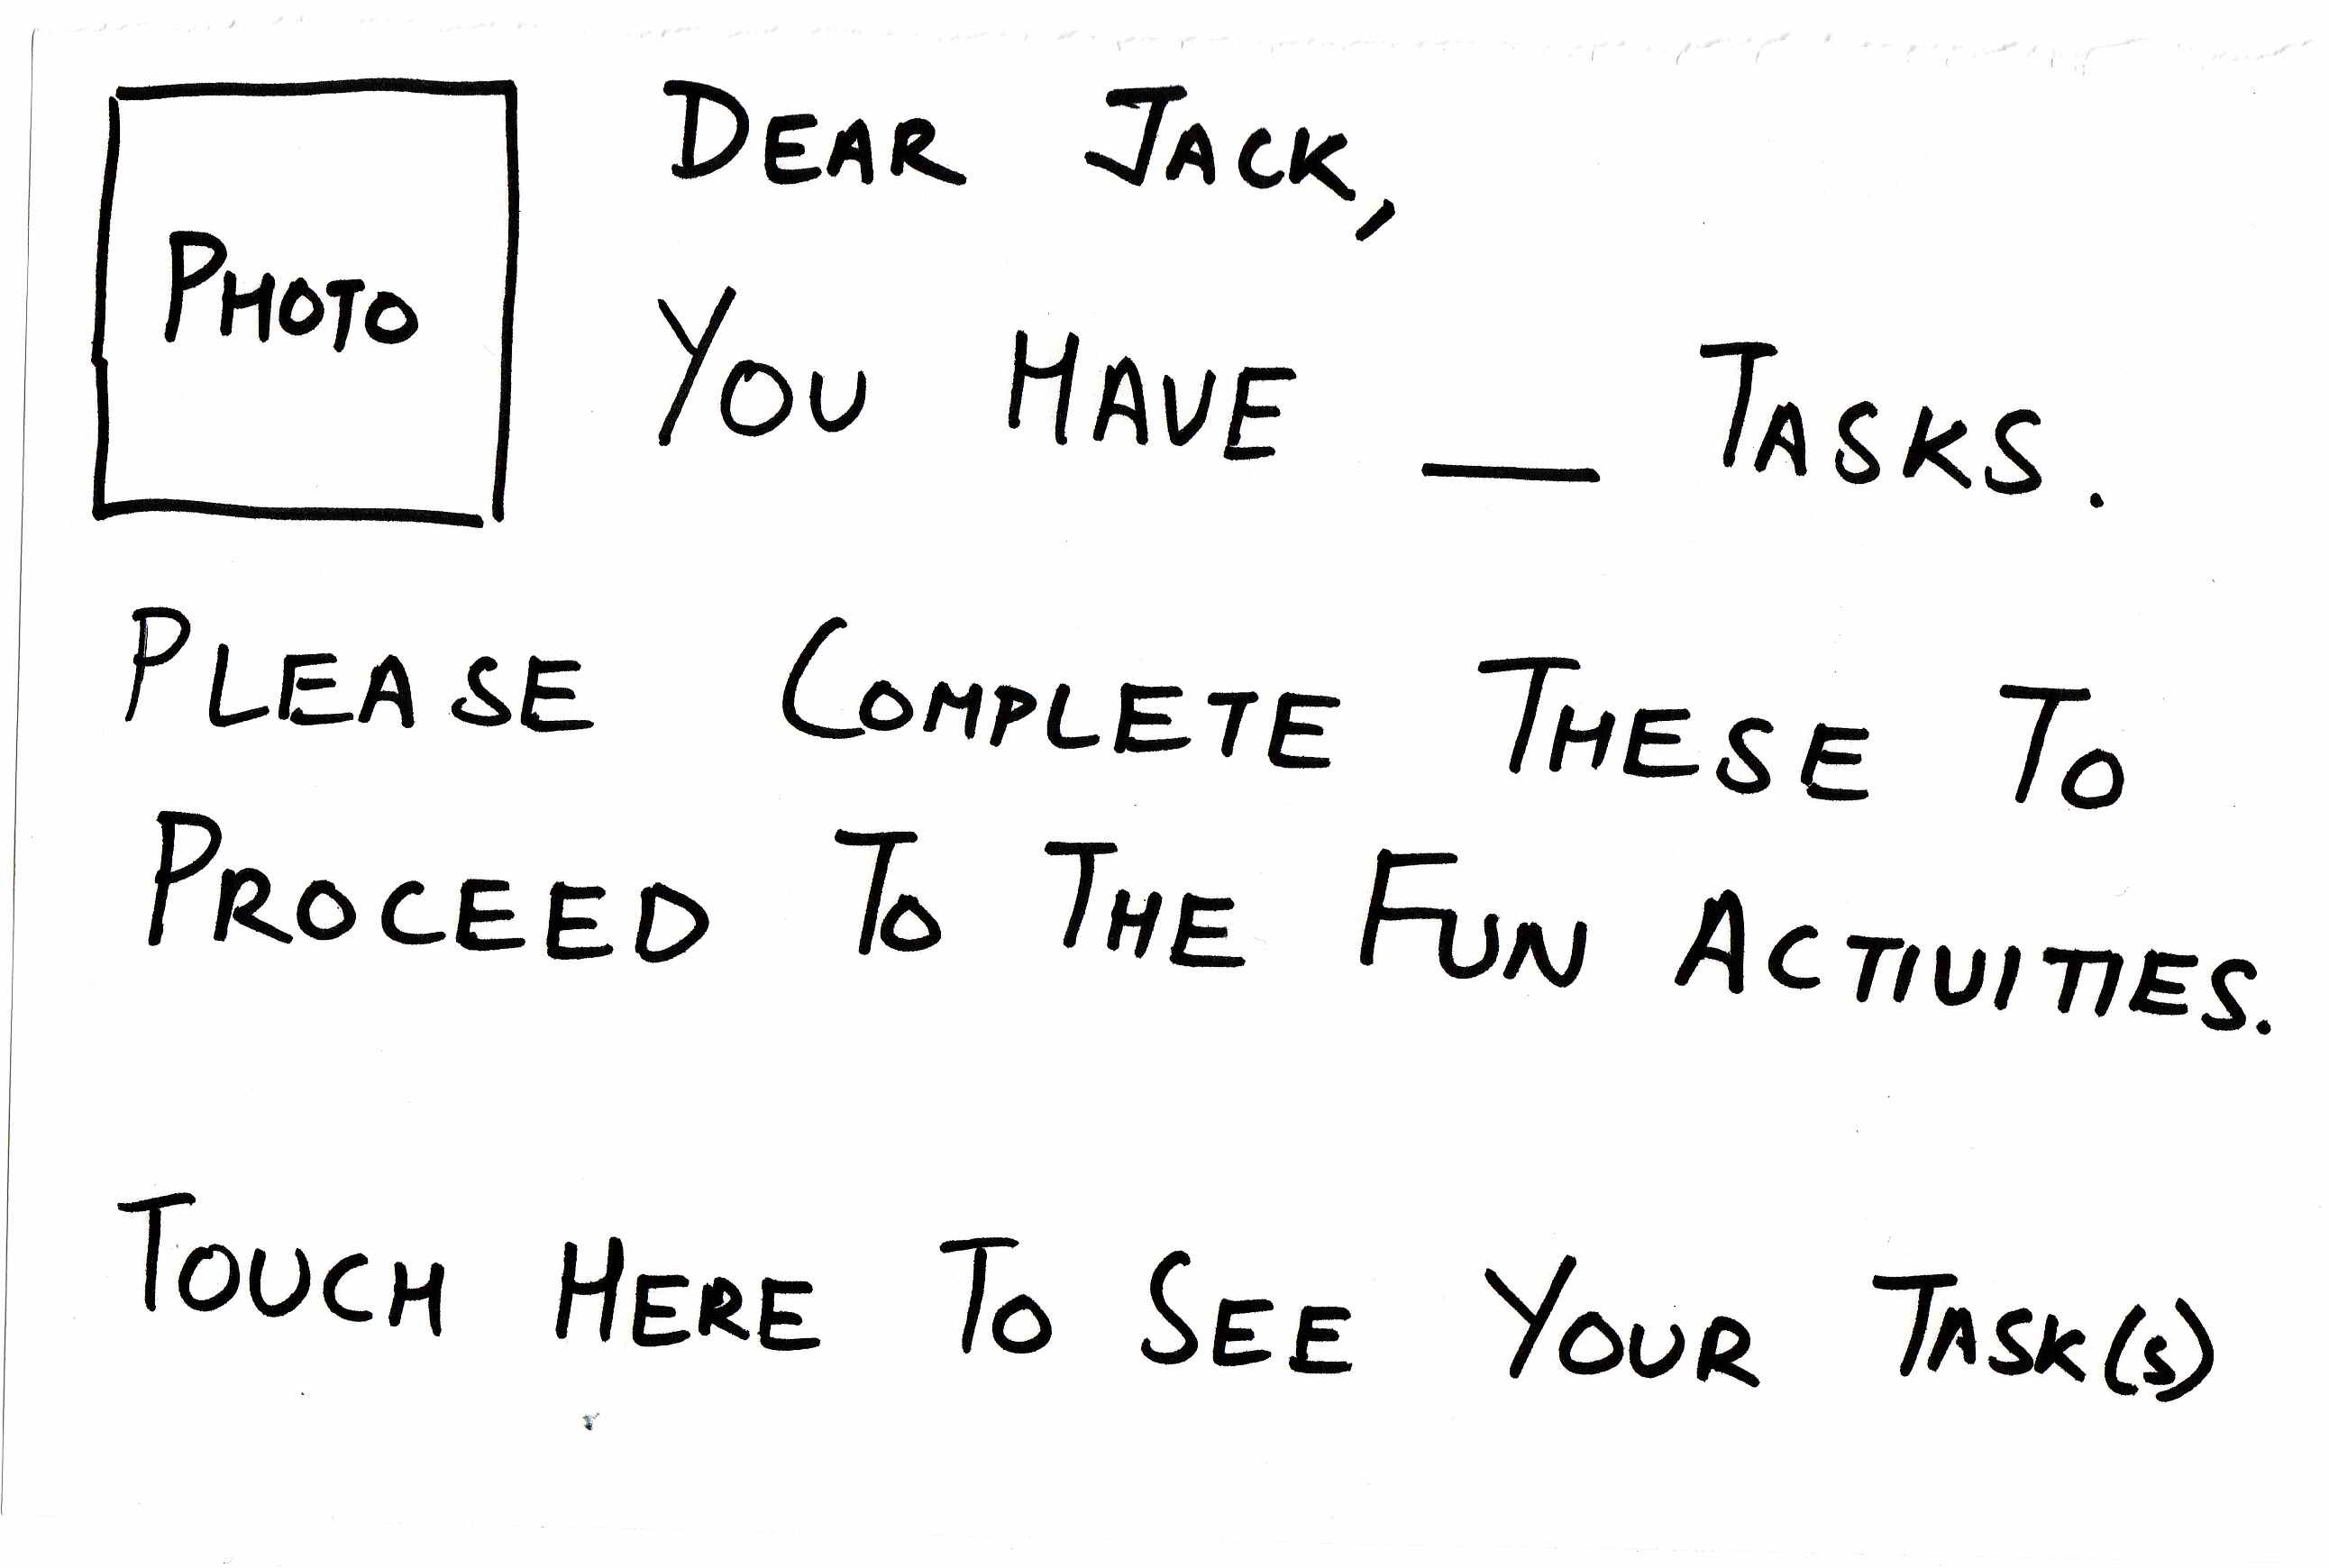 PHOTO
DEAR JACK,
YOU HAVE __ TASKS.
PLEASE COMPLETE THESE TO
PROCEED TO THE FUN ACTIVITIES.
TOUCH HERE TO SEE YOUR TASK(S)